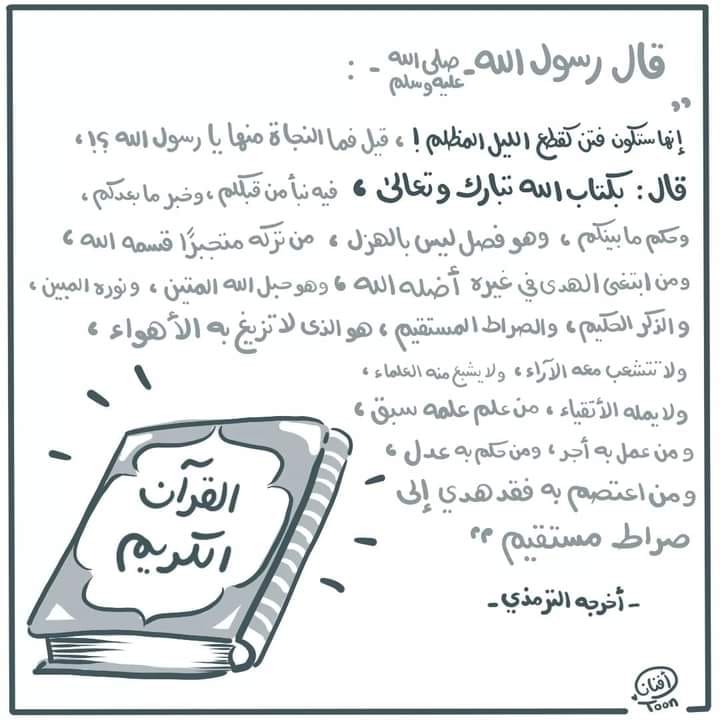 قال رسول الله - صلى الله عليه وسلم - :
"
إنها ستكون فتن كقطع الليل المظلم ! ، قيل فما النجاة منها يا رسول الله ؟! ،
قال : بكتاب الله تبارك وتعالى ، فيه نبأ من قبلكم ، وخبر ما بعدكم ،
وحكم ما بينكم ، وهو فصل ليس بالهزل ، من تركه متجبرًا قسمه الله ،
ومن ابتغى الهدى في غيره أضله الله ، وهو حبل الله المتين ، ونوره المبين ،
والذكر الحكيم ، والصراط المستقيم ، هو الذى لا تزيغ به الأهواء ،
ولا تتشعب معه الآراء ، ولا يشبع منه العلماء ،
ولا يمله الأتقياء ، من علم علمه سبق ،
ومن عمل به أجر ، ومن حكم به عدل ،
ومن اعتصم به فقد هدي إلى
صراط مستقيم "
- أخرجه الترمذي -
القرآن
الكريم
أفنان
Toon